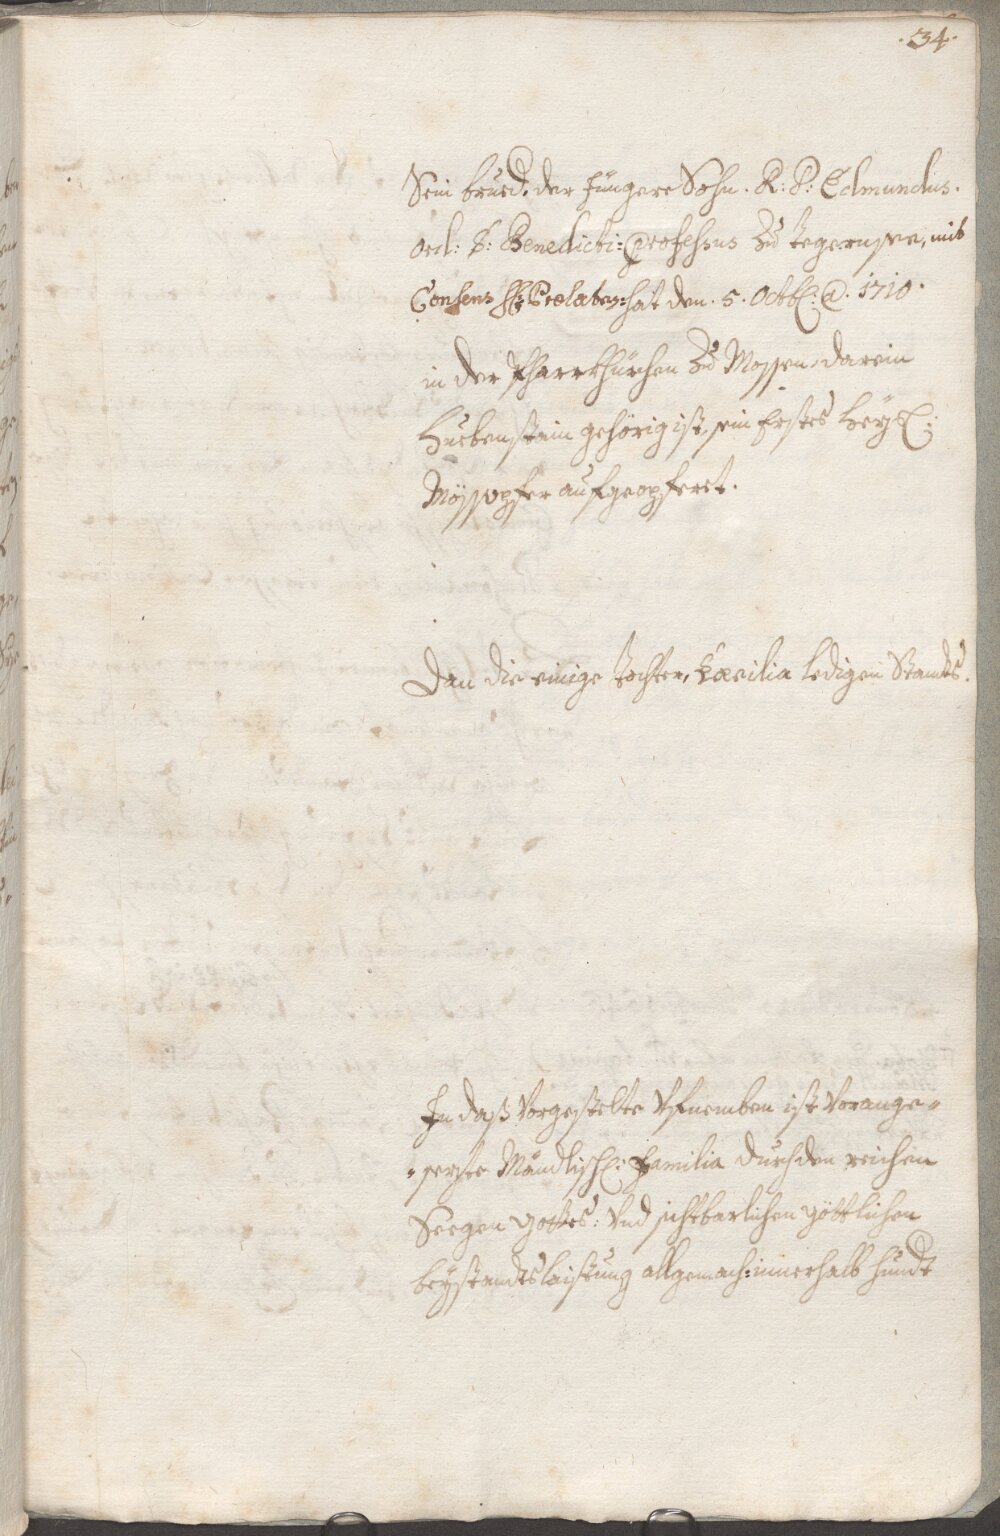 .34.
Sein brued. der Jüngere Sohn. R: P: Edmundus.
ord: S: Benedicti: Professus Zu Tegernsee, mit
Consens H: Prelaten: hat den. 5. Octb: A. 1710.
in der Pfarrkhürchen Zu Mossen, darein
Huebenstain gehörig ist, sein Erstes Heyl:
Mössopfer aufgeopferet.
Dan die einige Tochter, Caecilia ledigen Standts.
In daß Vorgestelte Ufnemben ist Vorange=
=sezte Mändlisch: Familia durch den reichen
Seegen Gottes: Und sichtbarlichen göttlichen
beystandtslaistung allgemach: innerhalb hundt